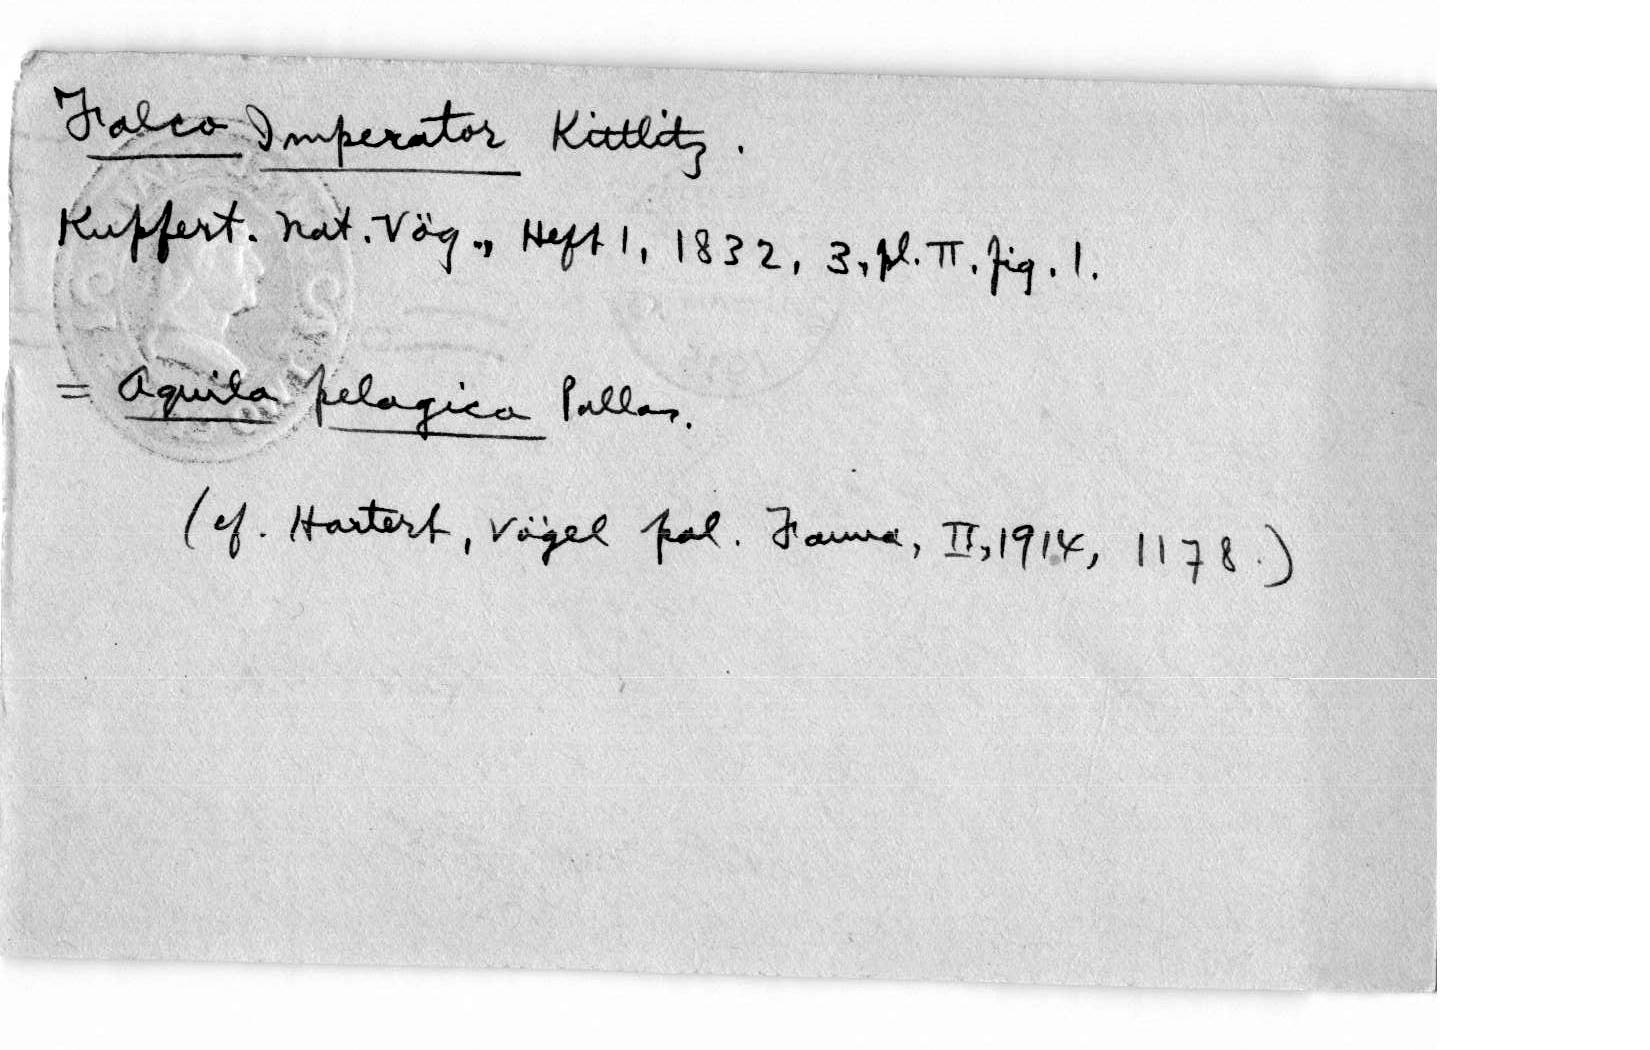 Falco Imperator Kittlitz.
Kupfert. Nat. Vög., Heft 1, 1832, 3, pl. II. fig. 1.
= Aquila pelagica Pallas.
(cf. Hartert, Vögel pal. Fauna, II, 1914, 1178.)